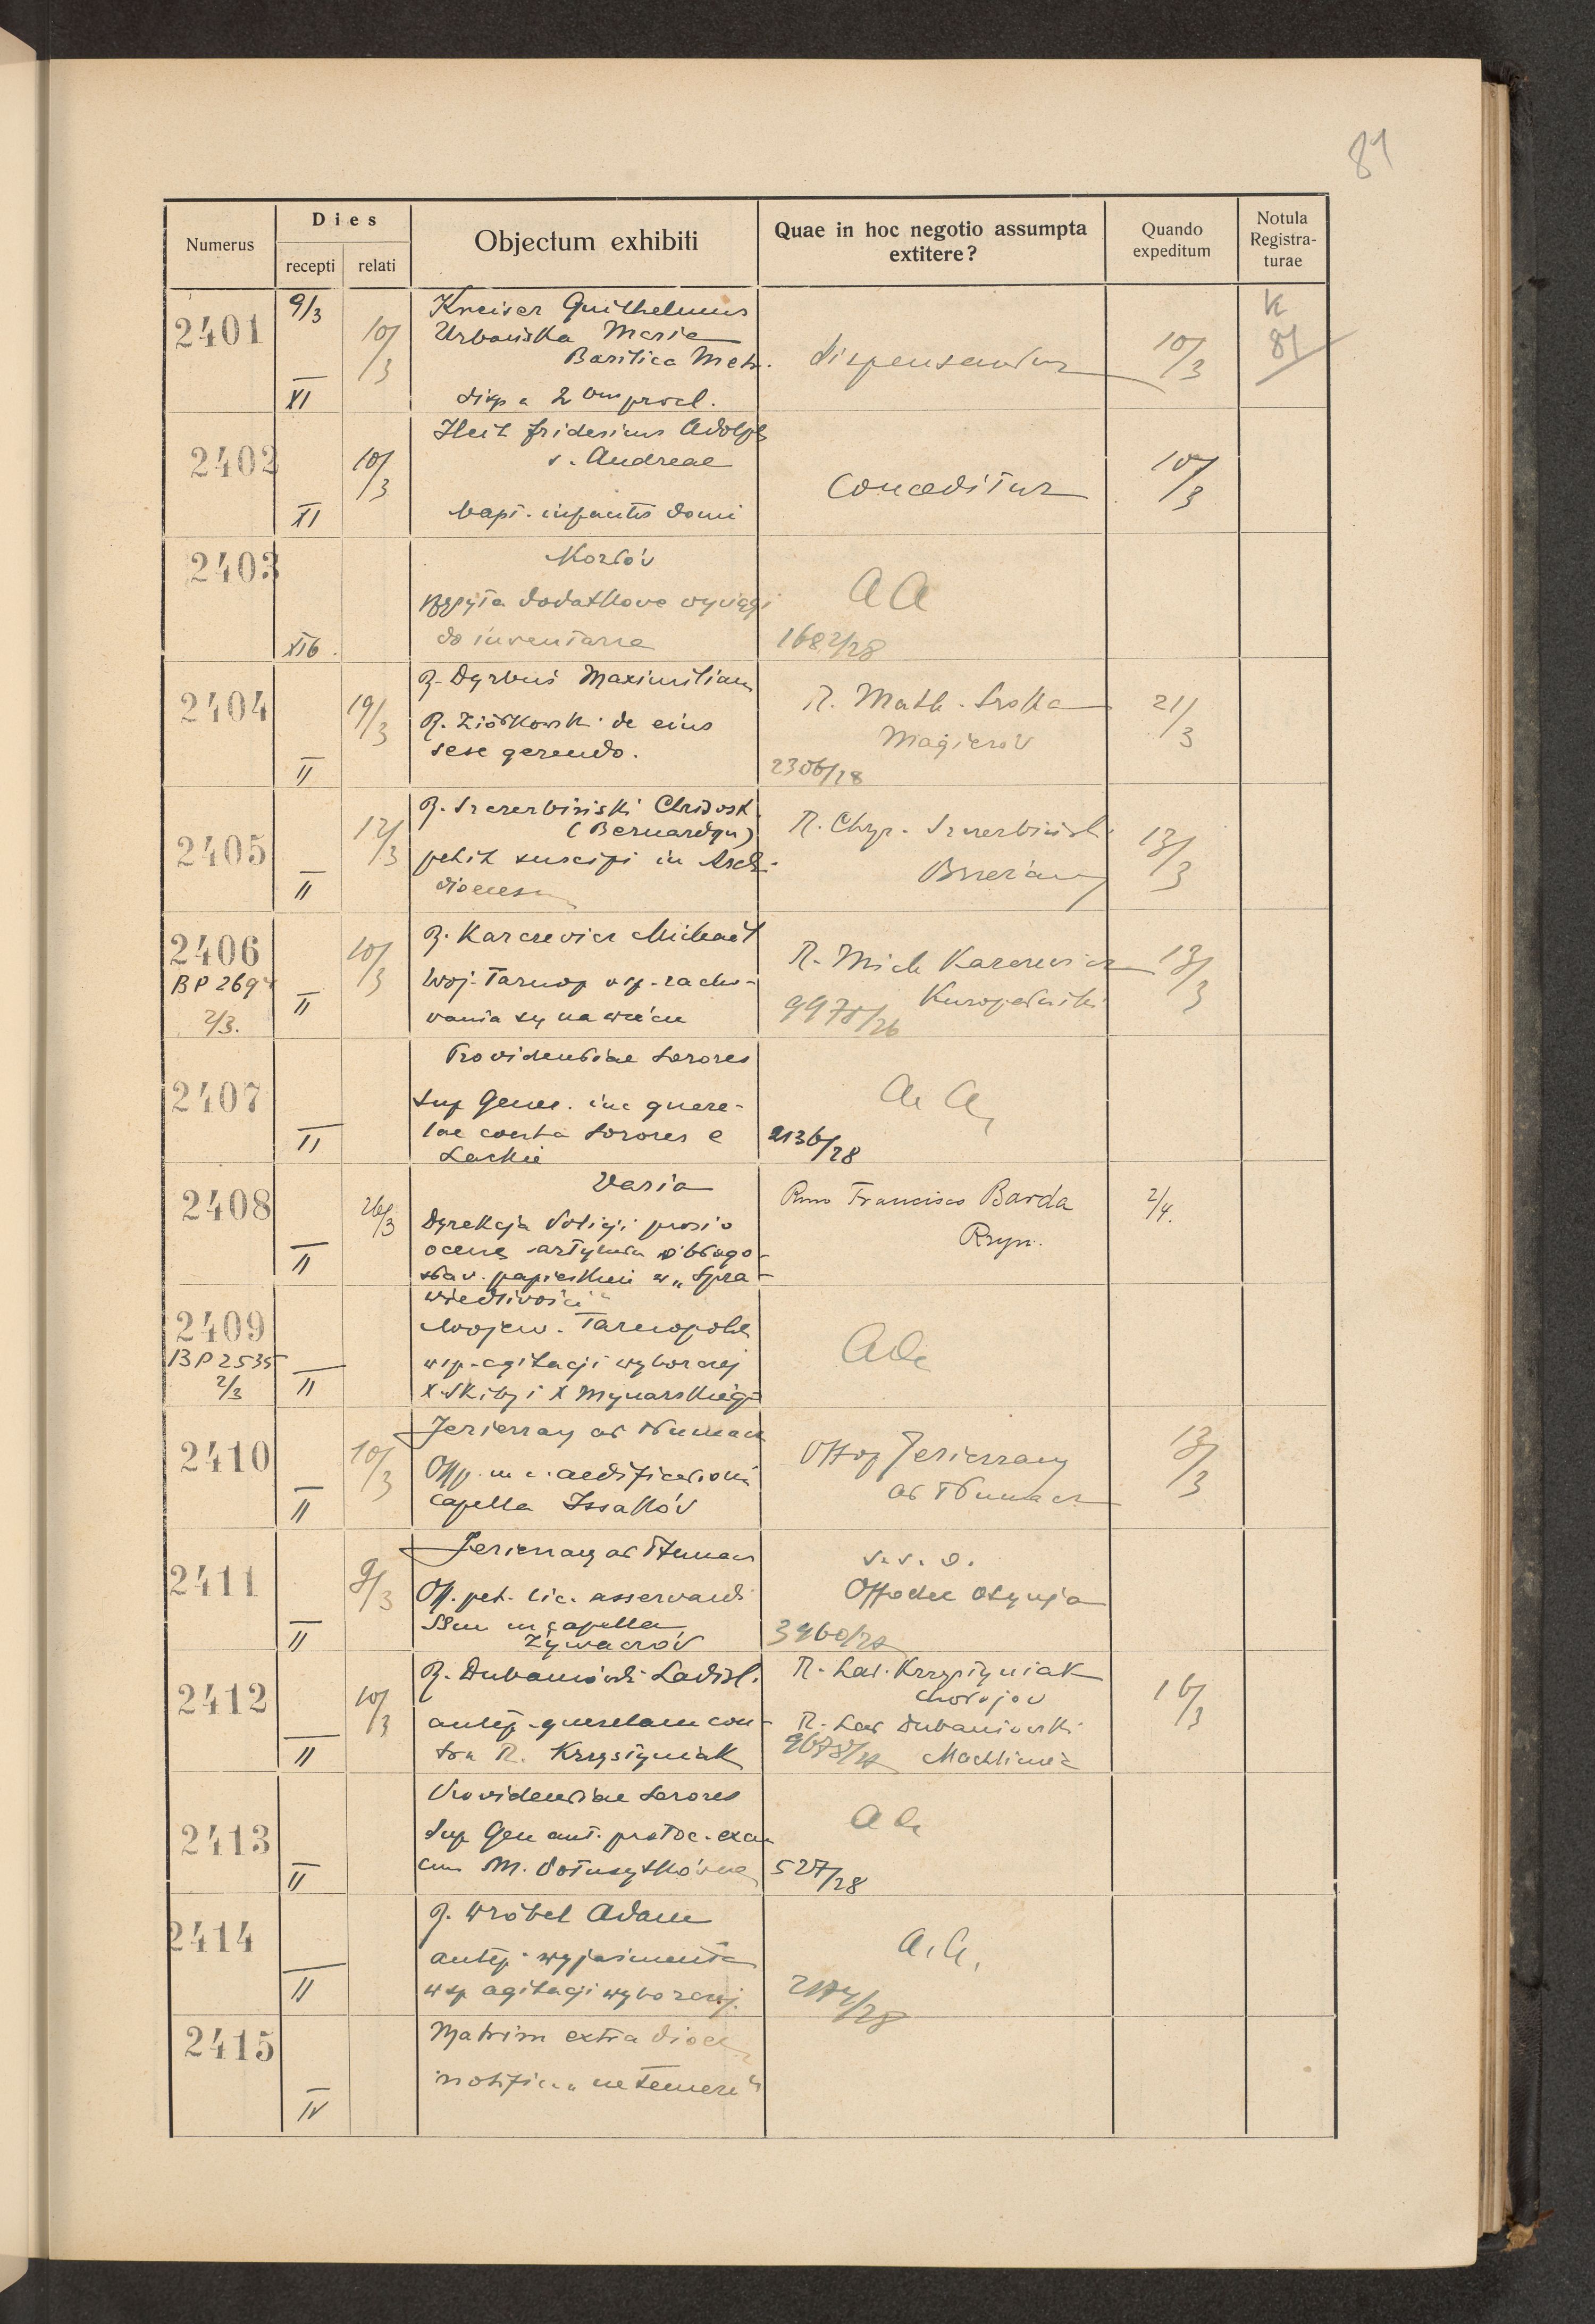 81
Numerus
Dies
recepti
relati
Objectum exhibiti
Quae in hoc negotio assumpta
extitere?
Quando
expeditum
Notula
Registra-
turae
2401
9/3
XI
10/3
Kreiser Guilhelmus
Urbańska Maria
Basilica Metr.
disp a 2 procl.
dispensantur
10/3
k
81
2402
XI
10/3
Fridericus Adolph
s. Andreae
bapt. infantis domi
conceditur
10/3
2403
XIb.
Kozłów
dodatkowe wyciągi
do inventarza
AA
1682/28
2404
II
19/3
R. Maximilian
R. Ziółkowski de eius
sese gerendo.
R. Math. Sroka
Magierów
2306/28
21/3
2405
II
12/3
R. Szczerbiński
(Bernardyn)
petit suscipi in Archi-
dioecesim
R. Szczerbiński
Brzeżany
13/3
2406
BP 2694
2/3.
II
10/3
R. Karczewicz Michael
Woj. Tarnop wsp. zacho-
wania się na wiecu
R. Mich Karczewicz
Kuropatniki
9978/26
13/3
2407
II
Providentiae Sorores
Sup Gener. quere-
lae contra Sorores e
Lackie
A A
2136/28
2408
II
26/3
Varia
Dyrekcja Policji prosi o
ocenę artykułu o błogo-
sław. papieskim w „Spra-
wiedliwości"
Rmo Francisco Barda
Rzym.
2/4.
2409
BP 2535
2/3
II
Wojew. Tarnopol
wsp. agitacji wyborczej
X. Skiby i X
AA
2410
II
10/3
Jezierzany ad Tłumacz
Off. aedificationi
capella Issaków
Offop Jezierzany
ad Tłumacz
13/3
2411
II
9/3
Jezierzany ad Tłumacz
Off. pet. lic. asservandi
SSm in capella
Żywaczów
Offodec Otynja
2412
II
10/3
R. Dubaniowski Ladisl.
antep. querelam con-
tra R. Krzyśtyniak
R. Lad. Krzyśtyniak
Chołojow
R. Lad Dubaniowski
16/3
2413
II
Providentiae Sorores
Sup Gen ant. protoc.
cum M.
A A
527/28
2414
II
R. Wróbel Adam
antep. wyjaśnienia
wsp agitacji wyborczej.
A. A.
2415
IV
Matrim extra dioec
notific „ne temere"